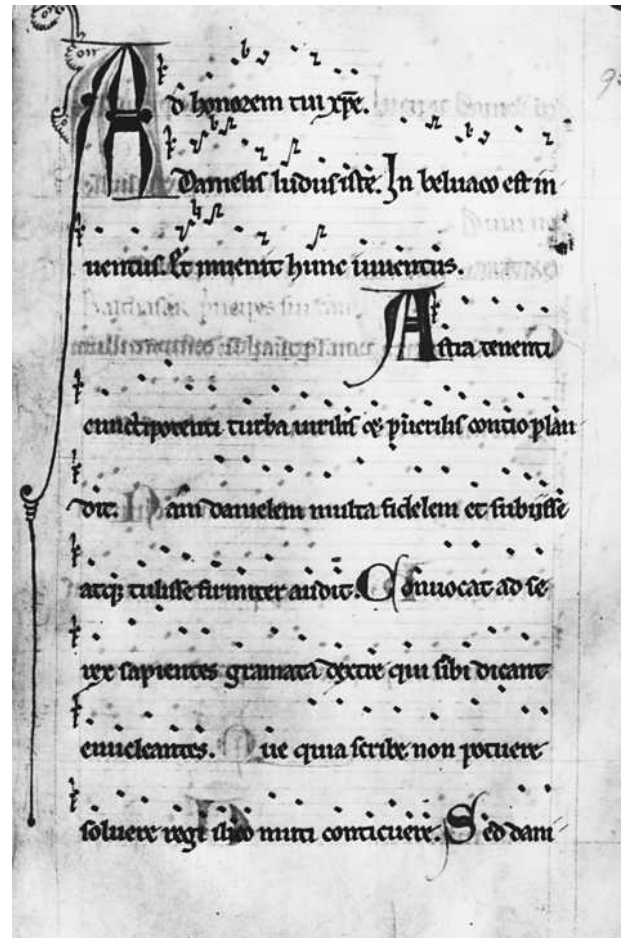 Ad honorem tui xp̄e.
Danielis ludus iste. In beluaco est in
uentus. Et inuenit hunc iuuentus.
Astra tenenti
cunctipotenti turba uirilis et puerilis contio plau
dit. Nam danielem multa fidelem et subiisse
atq; tulisse firmiter audit. Conuocat ad se
rex sapientes gramata dextre qui sibi dicant
enucleantes. Que quia scribe non potuere
soluere regi ilico muti conticuere. Sed dani